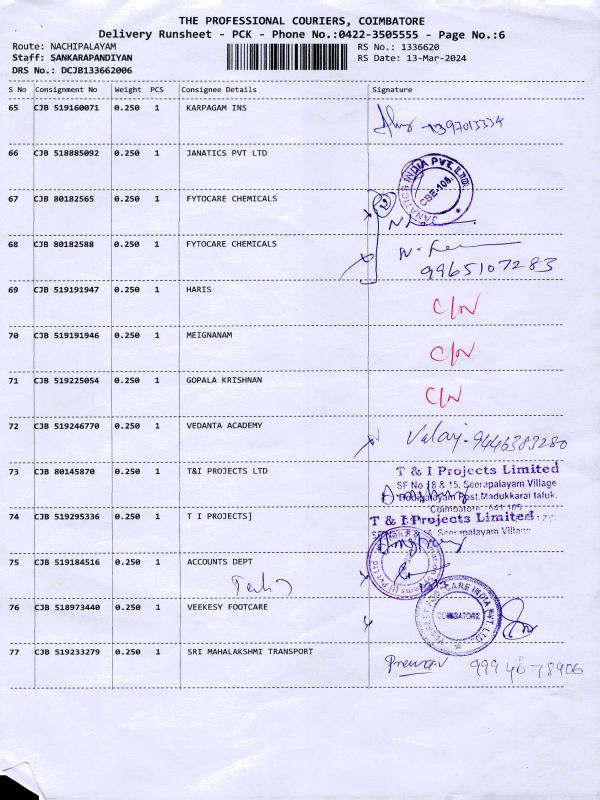 THE PROFESSIONAL COURIERS, COIMBATORE
Delivery Runsheet - PCK - Phone No.:0422-3505555 - Page No.:6
Route: NACHIPALAYAM
Staff: SANKARAPANDIYAN
DRS No.: DCJB133662006
RS No.: 1336620
RS Date: 13-Mar-2024
S No Consignment No Weight PCS Consignee Details Signature
65 CJB 519160071 0.250 1 KARPAGAM INS
66 CJB 518885092 0.250 1 JANATICS PVT LTD
JANATICS INDIA PVT. LTD. CBE-108.
67 CJB 80182565 0.250 1 FYTOCARE CHEMICALS
2
68 CJB 80182588 0.250 1 FYTOCARE CHEMICALS
9965107283
69 CJB 519191947 0.250 1 HARIS C/N
70 CJB 519191946 0.250 1 MEIGNANAM C/N
71 CJB 519225054 0.250 1 GOPALA KRISHNAN C/N
72 CJB 519246770 0.250 1 VEDANTA ACADEMY 9446383280
73 CJB 80145870 0.250 1 T&I PROJECTS LTD T & I Projects Limited
SF No 18 & 15, Seerapalayam Village
Post, Madukkarai taluk,
Coimbatore - 641 105
74 CJB 519295336 0.250 1 T I PROJECTS] T & I Projects Limited
Seerapalayam Village
75 CJB 519184516 0.250 1 ACCOUNTS DEPT
76 CJB 518973440 0.250 1 VEEKESY FOOTCARE
COIMBATORE
77 CJB 519233279 0.250 1 SRI MAHALAKSHMI TRANSPORT